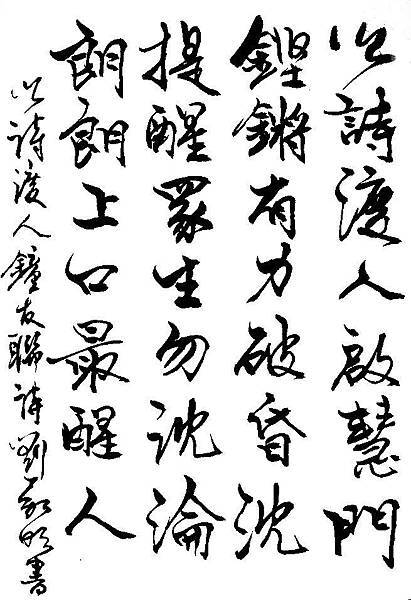 以詩渡人啟慧門
鏗鏘有力破昏沈
提醒眾生勿沈淪
朗朗上口最醒人
以詩渡人鐘友聯詩劉明書